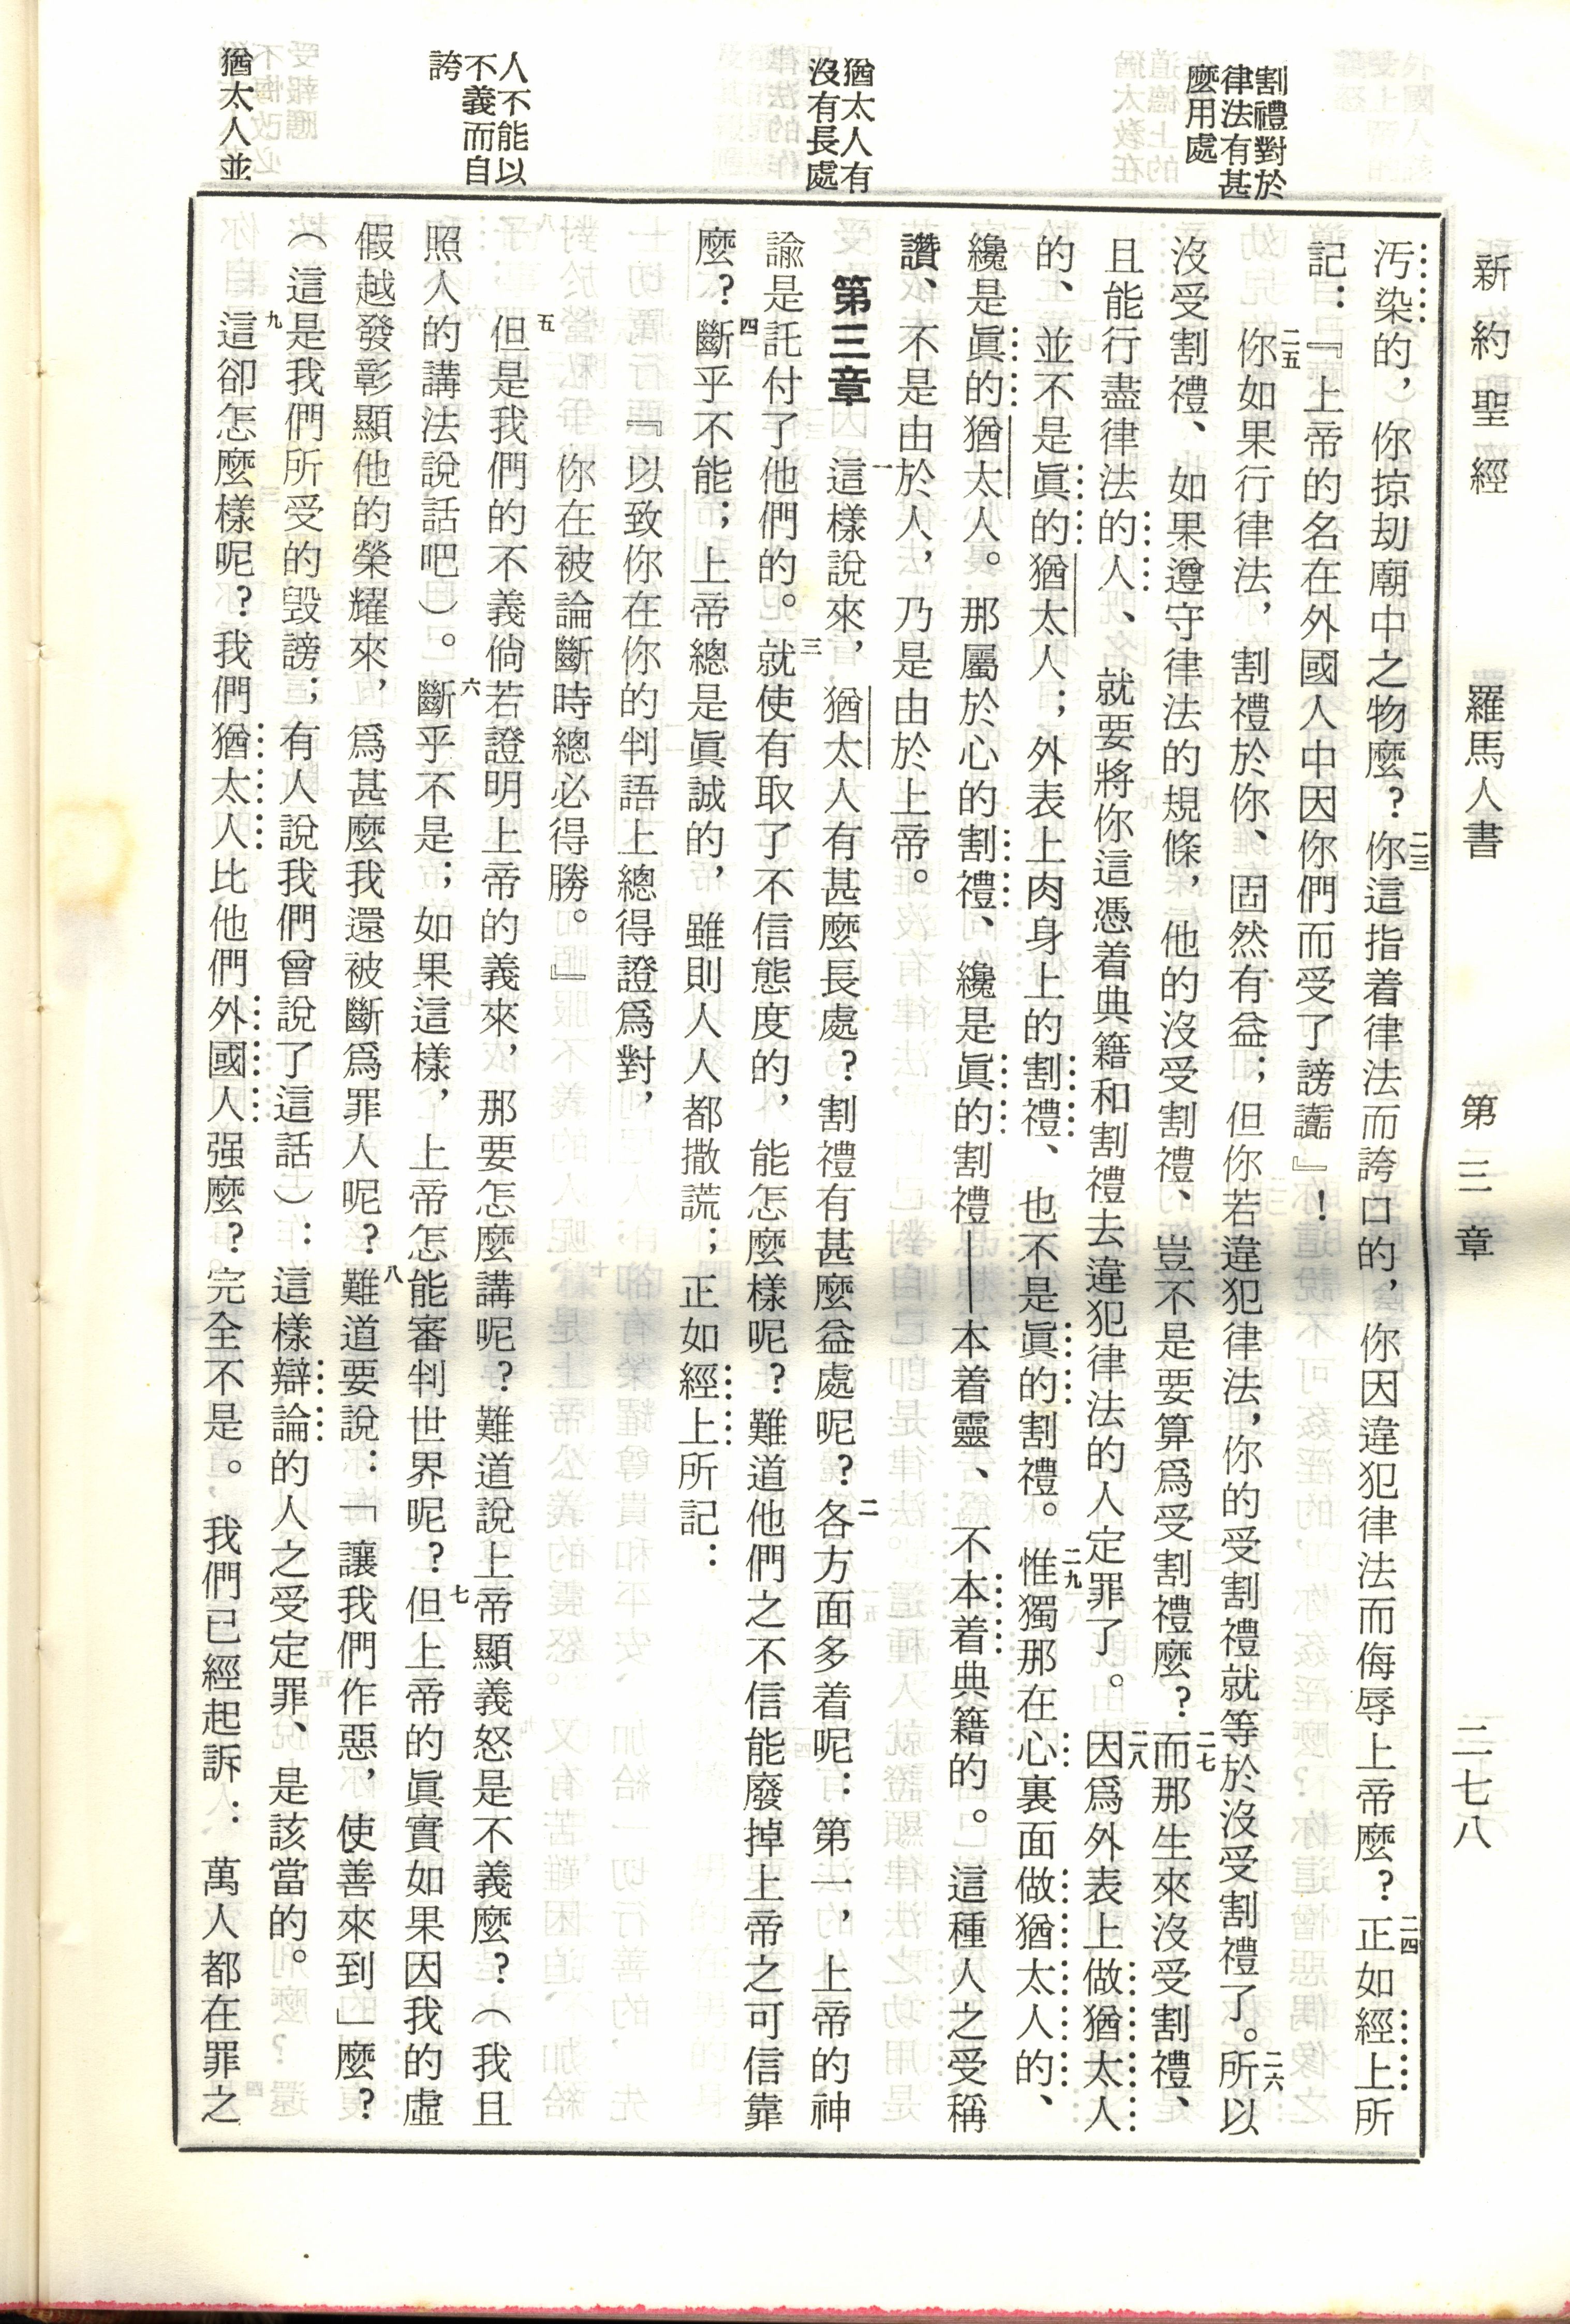 新約聖經　羅馬人書　第三章　二七八
割禮對於
律法有甚
麼用處
猶太人有
沒有長處
人不能以
不義而自
誇
猶太人並
汚染的，你掠刧廟中之物麼？二三你這指着律法而誇口的，你因違犯律法而侮辱上帝麼？二四正如經上所
記：『上帝的名在外國人中因你們而受了謗讟』！
二五你如果行律法，割禮於你、固然有益；但你若違犯律法，你的受割禮就等於沒受割禮了。二六所以
沒受割禮、如果遵守律法的規條，他的沒受割禮、豈不是要算爲受割禮麼？二七而那生來沒受割禮、
且能行盡律法的人、就要將你這憑着典籍和割禮去違犯律法的人定罪了。二八因爲外表上做猶太人
的、並不是眞的猶太人；外表上肉身上的割禮、也不是眞的割禮。二九惟獨那在心裏面做猶太人的、
纔是眞的猶太人。那屬於心的割禮、纔是眞的割禮——本着靈、不本着典籍的。這種人之受稱
讚、不是由於人，乃是由於上帝。
第三章　一這樣說來，猶太人有甚麼長處？割禮有甚麼益處呢？二各方面多着呢：第一，上帝的神
諭是託付了他們的。三就使有取了不信態度的，能怎麼樣呢？難道他們之不信能廢掉上帝之可信靠
麼？四斷乎不能；上帝總是眞誠的，雖則人人都撒謊；正如經上所記：
『以致你在你的判語上總得證爲對，
你在被論斷時總必得勝。』
五但是我們的不義倘若證明上帝的義來，那要怎麼講呢？難道說上帝顯義怒是不義麼？（我且
照人的講法說話吧）。六斷乎不是；如果這樣，上帝怎能審判世界呢？七但上帝的眞實如果因我的虛
假越發彰顯他的榮耀來，爲甚麼我還被斷爲罪人呢？八難道要說：「讓我們作惡，使善來到」麼？
（這是我們所受的毀謗；有人說我們曾說了這話）：這樣辯論的人之受定罪、是該當的。
九這卻怎麼樣呢？我們猶太人比他們外國人强麼？完全不是。我們已經起訴：萬人都在罪之